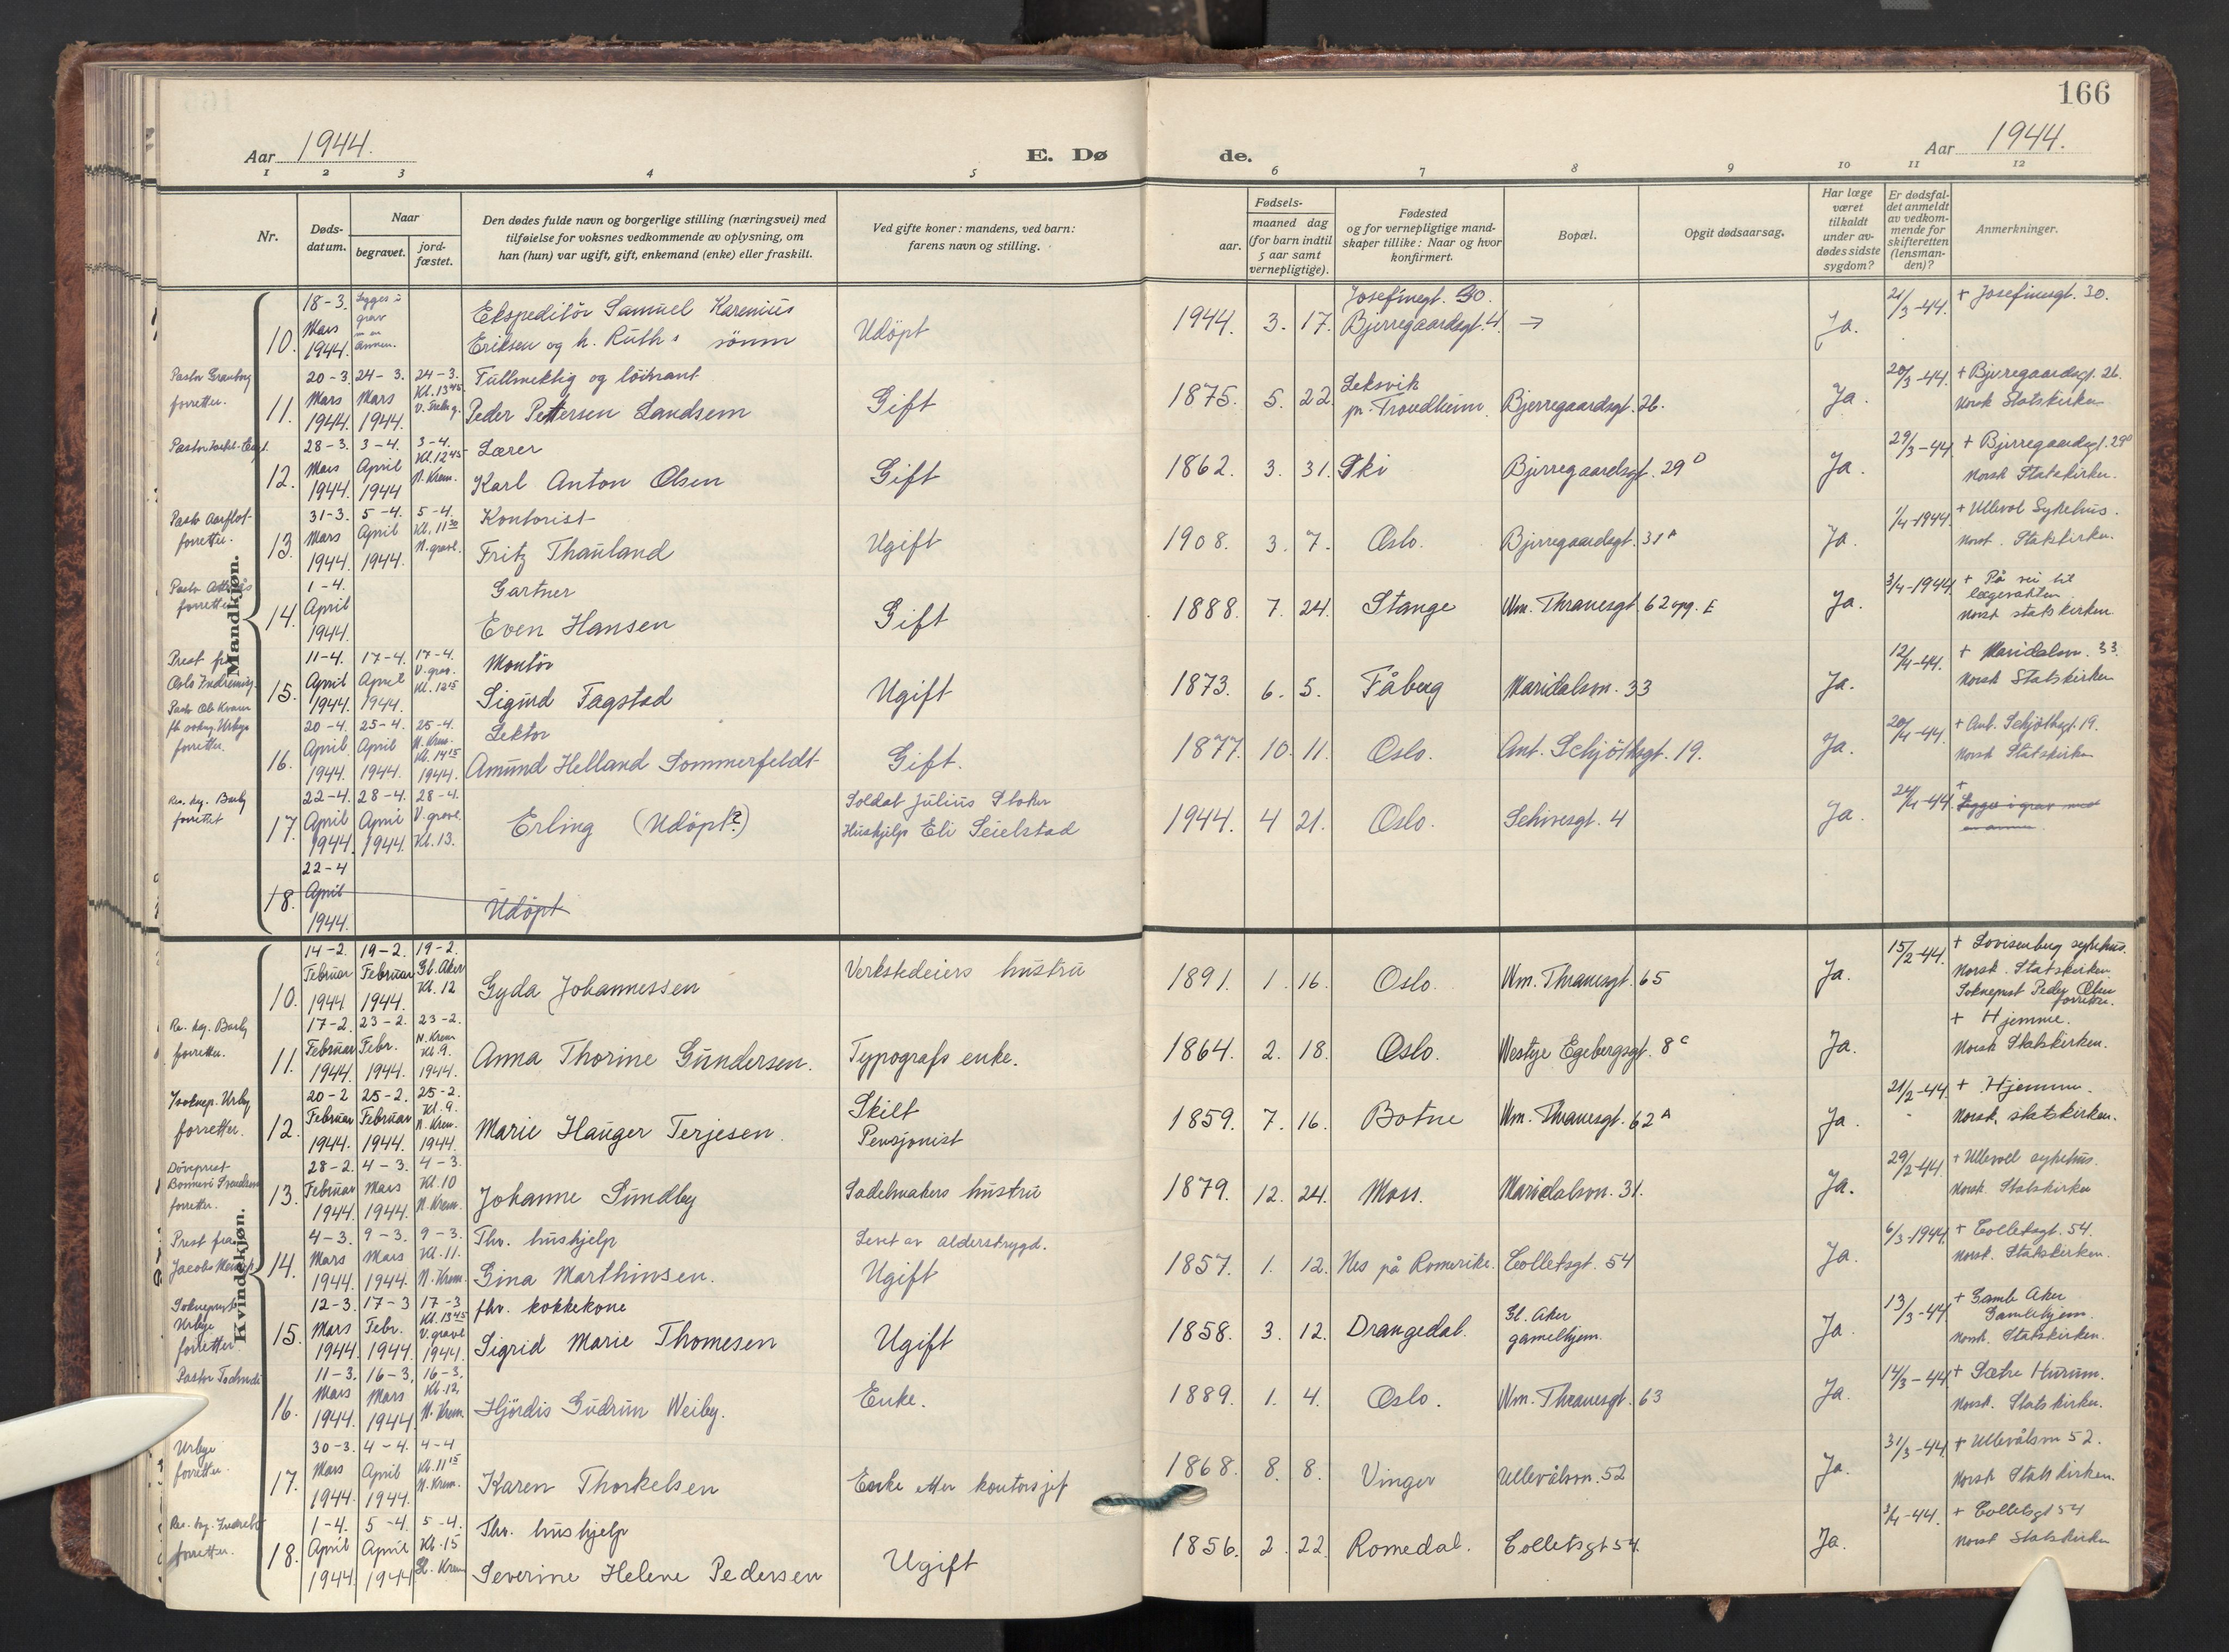 166
Aar 1944.
E. Dø
de.
Aar 1944.
1 2 3 4 5 6 7 8 9 10 11 12
Nr.
Døds-
datum.
Naar
begravet.
jord-
fæstet.
Den dødes fulde navn og borgerlige stilling (næringsvei) med
tilføielse for voksnes vedkommende av oplysning, om
han (hun) var ugift, gift, enkemand (enke) eller fraskilt.
Ved gifte koner: mandens, ved barn:
farens navn og stilling.
Fødsels-
aar.
maaned dag
(for barn indtil
5 aar samt
vernepligtige).
Fødested
og for vernepligtige mand-
skaper tillike: Naar og hvor
konfirmert.
Bopæl.
Opgit dødsaarsag.
Har læge
været
tilkaldt
under av-
dødes sidste
sygdom?
Er dødsfal-
det anmeldt
av vedkom-
mende for
skifteretten
(lensman-
den)?
Anmerkninger.
Mandkjøn.
10. 18-3. Mars 1944. Legges i grav
Ekspeditör Samuel Karenius
Eriksen og h. Ruth s sönn
Udöpt
1944. 3. 17. Josefinegt. 30. Bjerregaardsgt. 4. Ja. 21/3-44. + Josefinesgt. 30.
forretter.
11. 20-3. Mars 1944. 24-3. Mars 1944. 24-3. Kl. 13 45
Fullmektig og löitnant
Peder Pettersen Landsem
Gift
1875. 5. 22. Leksvik pr. Trondheim. Bjerregaardsgt. 26. Ja 20/3-44. + Bjerregaardsgt. 26.
Norsk Statskirken
12. 28-3. Mars 1944. 3-4. April 1944 3-4. Kl. 12 45 N. Krem.
Lærer
Karl Anton Olsen
Gift
1862. 3. 31. Ski Bjerregaardsgt. 29 D Ja 29/3-44. + Bjerregaardsgt. 29 D
Norsk Statskirken.
Pastor Aarflot
forretter.
13. 31-3. Mars 1944. 5-4. April 1944. 5-4. Kl. 11 30 N. gravl.
Kontorist
Fritz Thauland
Ugift
1908. 3. 7. Oslo. Bjerregaardsgt. 31 A Ja. 1/4-1944. + Ullevol Sykehus.
Norsk. Statskirken.
14. 1-4. April 1944.
Gartner
Even Hansen
Gift
1888. 7. 24. Stange Wm. Thranesgt. 62 opg. E Ja. 3/4-1944. + På vei til
lægevakten.
Norsk statskirken.
Prest fra
Oslo Indremisj.
15. 11-4. April 1944. 17-4. April 1944. 17-4. V. grav. Kl. 12 15
Montör
Sigurd Fagstad
Ugift
1873. 6. 5. Fåberg Maridalsvn. 33 Ja. 12/4-44. + Maridalsvn. 33.
Norsk Statskirken
forretter.
16. 20-4. April 1944. 25-4. April 1944. 25-4. N. Krem. Kl. 14 15 1944.
Lektor
Amund Helland Sommerfeldt
Gift.
1877. 10. 11. Oslo. Ant. Schjöthsgt. 19. Ja. 20/4-44. + Ant. Schjöthsgt. 19.
Norsk Statskirken
17. 22-4. April 1944. 28-4. April 1944. 28-4. V. gravl. Kl. 13.
Erling (Udöpt?)
Soldat Julius Stoker
Huskjelp Eli Seielstad
1944. 4 21. Oslo. Schivesgt. 4 Ja. 24/4-44. +
Legges i grav med
en annen.
18. 22-4 April 1944.
Udöpt
Kvindekjøn.
10. 14-2. Februar 1944. 19-2. Februar 1944. 19-2. Gl. Aker Kl. 12
Gyda Johannessen
Verkstedeiers hustru
1891. 1. 16. Oslo. Wm. Thranesgt. 65 Ja. 15/2-44. + Lovisenberg sykehus.
Norsk. Statskirken.
Sokneprest Peder Olsen
forretter.
forretter.
11. 17-2. Februar 1944. 23-2. Febr. 1944. 23-2. N. Krem Kl. 9. 1944.
Anna Thorine Gundersen.
Typografs enke.
1864. 2. 18. Oslo. Westye Egebergsgt. 8 C Ja. + Hjemme.
Norsk Statskirken.
Soknep. Urbye
forretter.
12. 20-2 Februar 1944. 25-2. Februar 1944. 25-2. Kl. 9. N. Krem. 1944.
Marie Hauger Terjesen.
Skilt
Pensjonist
1859. 7. 16. Botne Wm. Thranesgt. 62 A Ja. 21/2-44. + Hjemme.
Norsk. statskirken.
Döveprest
Bonnevi Svendsen
forretter.
13. 28-2. Februar 1944. 4-3. Mars 1944. 4-3. Kl. 10 N. Krem.
Johanne Sundby
Sadelmakers hustru
1879. 12. 24. Moss. Maridalsvn. 31. Ja. 29/2-44. + Ullevoll sykehus.
Norsk. Statskirken
Prest fra
14. 4-3. Mars 1944. 9-3. Mars 1944. 9-3. Kl. 11. N. Krem.
Thv. hushjelp
Gina Marthinsen.
Levet av alderstrygd.
Ugift
1857. 1. 12. Nes på Romerike. Colletsgt. 54 Ja. 6/3-1944. + Colletsgt. 54.
Norsk. Statskirken.
Sokneprest
Urbye
forretter.
15. 12-3. Mars 1944. 17-3 Febr. 1944. 17-3 Kl. 13 45 V. gravl 1944.
fhv. kokkekone
Sigrid Marie Thomesen
Ugift
1858. 3. 12. Drangedal. Gl. Aker gamelhjem. Ja. 13/3-44. + Gamle Aker
Gamlehjem.
Norsk. Statskirken.
16. 11-3. Mars 1944. 16-3. Mars 1944. 16-3. Kl. 12. N. Krem.
Hjördis Gudrun Weiby.
Enke.
1889. 1. 4. Oslo. Wm. Thranesgt. 63 Ja. 14/3-44. + Sætre Hurum.
Norsk. Statskirken.
Urbye
forretter.
17. 30-3. Mars 1944. 4-4. April 1944. 4-4 Kl. 11 15 N. Krem.
Karen Thorkelsen
Enke etter kontorsjef
1868. 8. 8. Vinger Ullevålsvn. 52 Ja. 31/3-44. + Ullevålsvn 52.
Norsk Statskirken.
forretter.
18. 1-4. April 1944. 5-4. April 1944 5-4. Kl. 15
Thv. hushjelp
Severine Helene Pedersen
Ugift
1856. 2. 22. Romedal. Colletsgt 54. Ja. 3/4-44. + Colletsgt 54
Norsk Statskirken